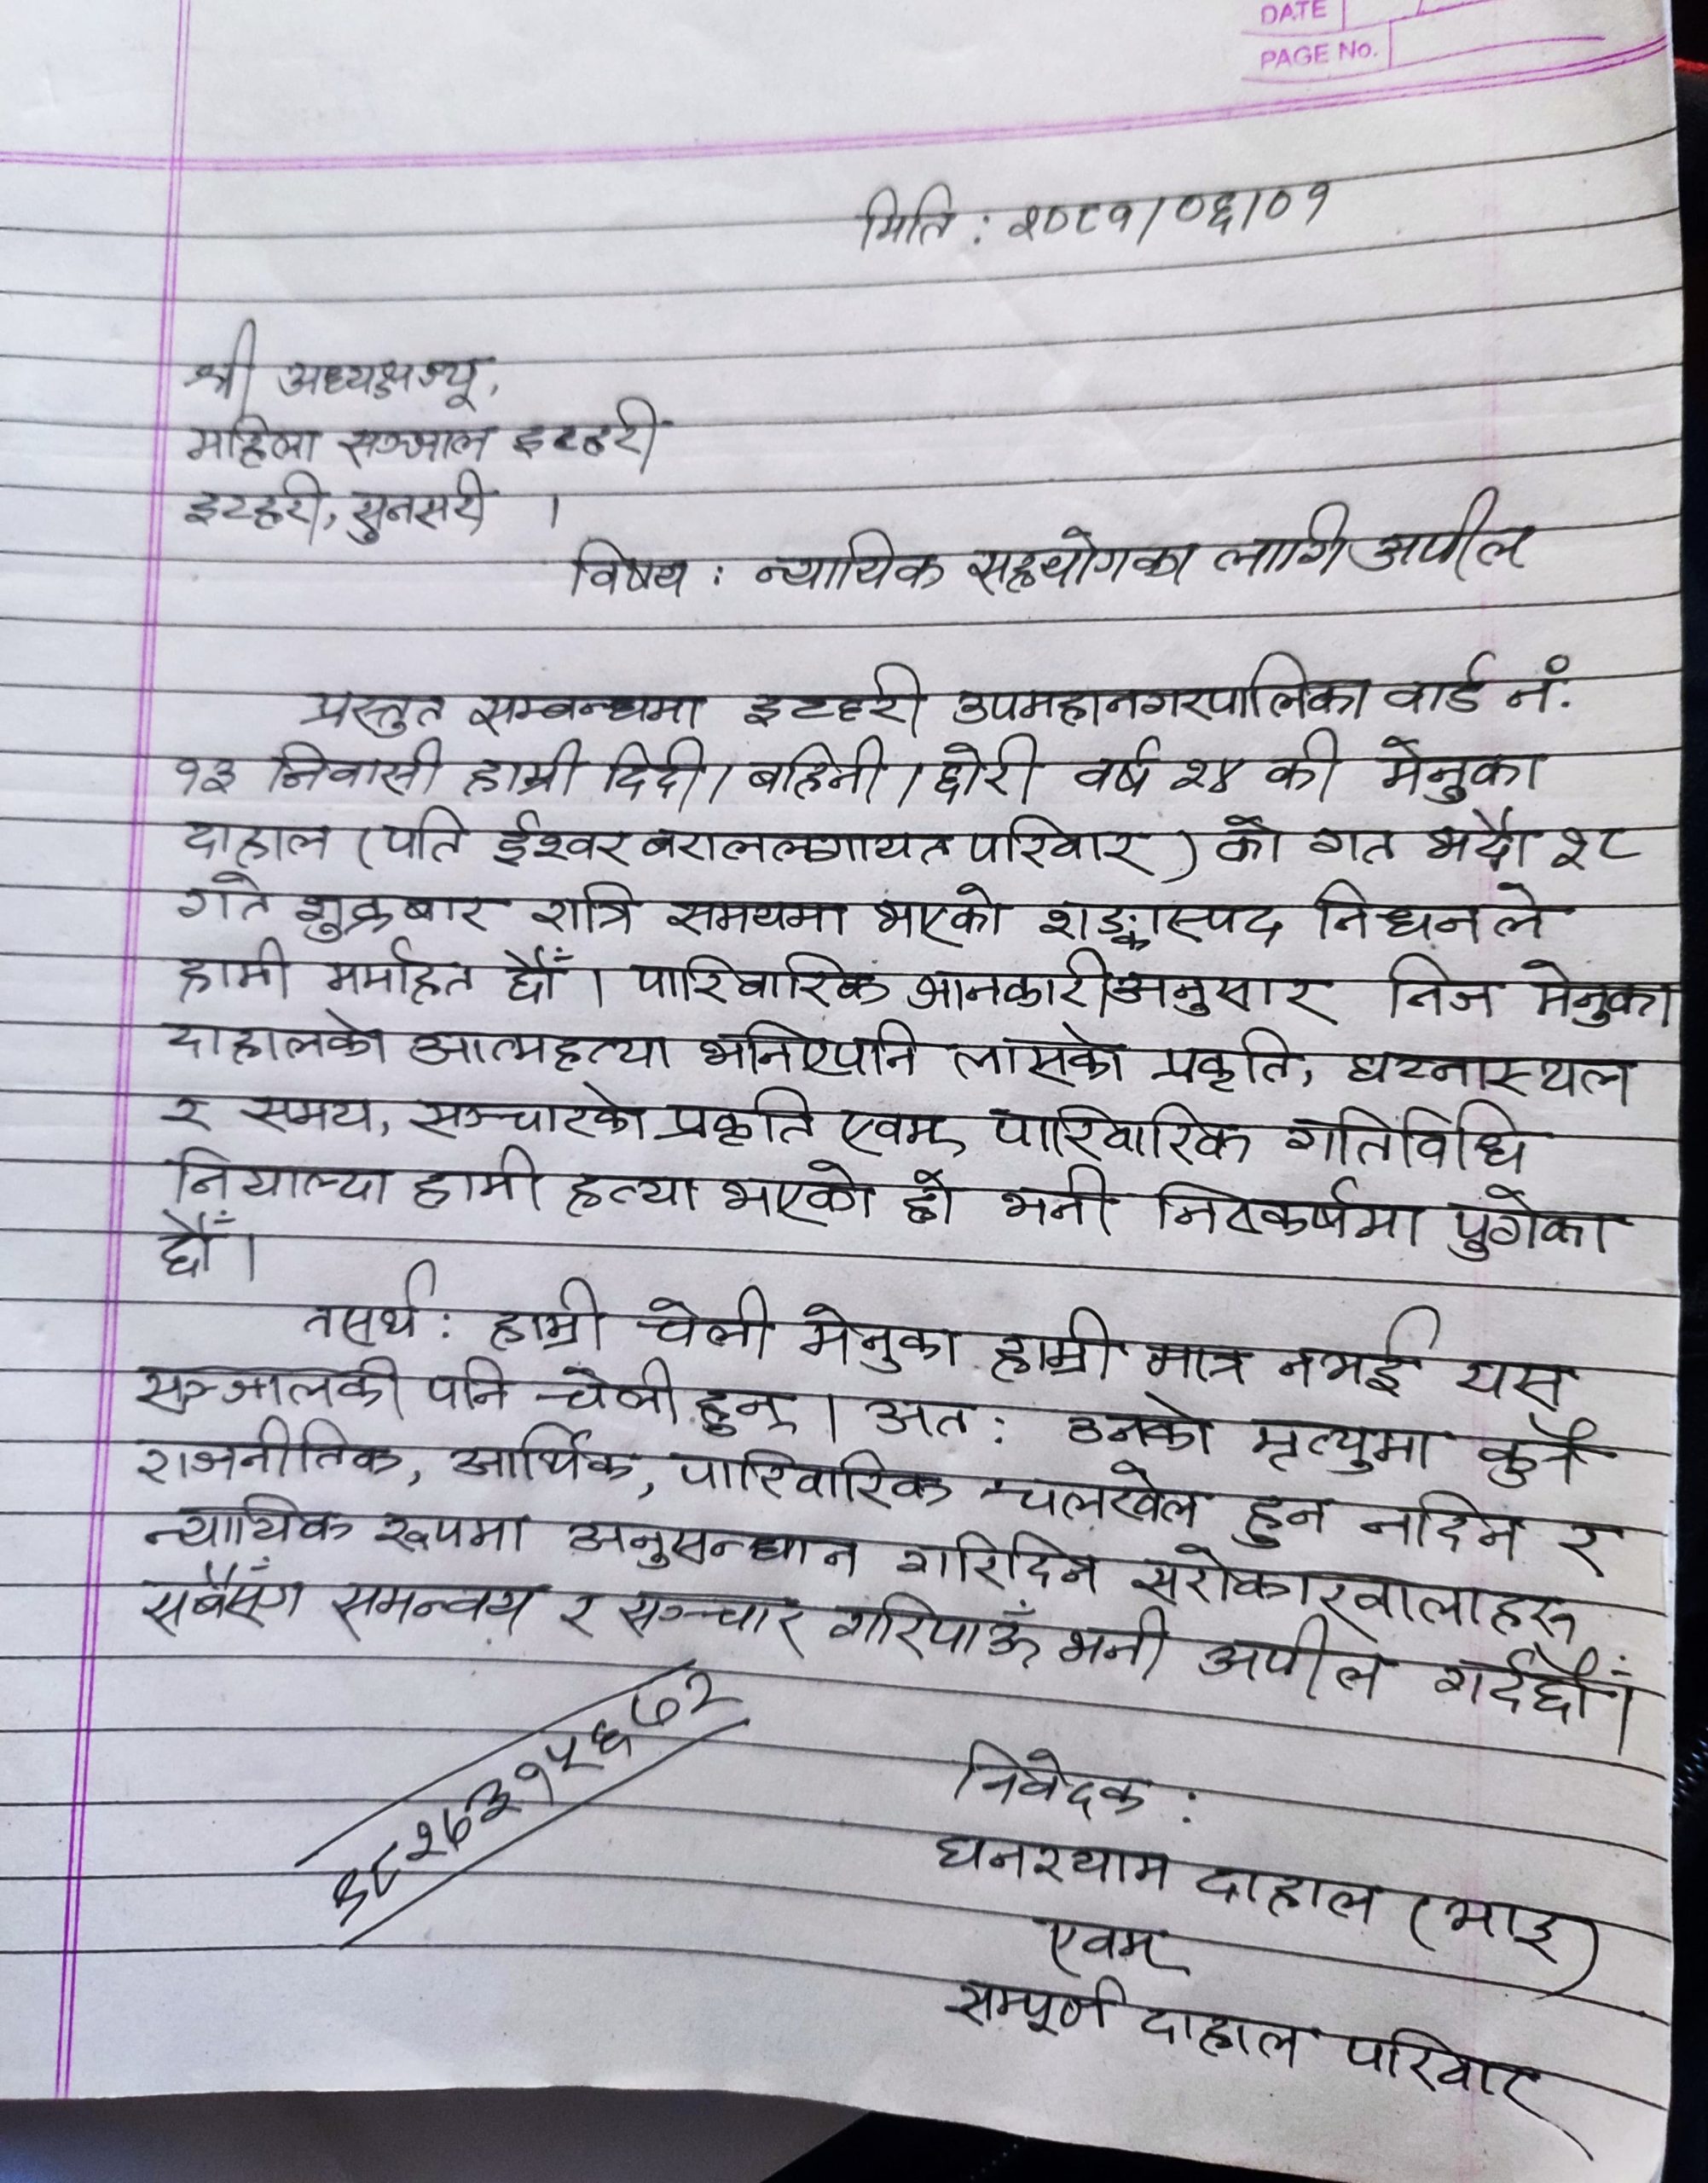 DATE
PAGE No.
मिति : २०८१/०६/०१
श्री अध्यक्षज्यू,
महिला सञ्जाल इटहरी
इटहरी, सुनसरी ।
विषय : न्यायिक सहयोगका लागि अपील
प्रस्तुत सम्बन्धमा इटहरी उपमहानगरपालिका वार्ड नं.
१३ निवासी हाम्री दिदी/बहिनी/छोरी वर्ष २४ की मेनुका
दाहाल (पति ईश्वर बराललगायत परिवार) को गत भदौ २८
गते शुक्रबार रात्रि समयमा भएको शङ्कास्पद निधनले
हामी मर्माहत छौँ । पारिवारिक जानकारीअनुसार निज मेनुका
दाहालको आत्महत्या भनिएपनि लासको प्रकृति, घटनास्थल
र समय, सञ्चारको प्रकृति एवम् पारिवारिक गतिविधि
नियाल्दा हामी हत्या भएको हो भनी निस्कर्षमा पुगेका
छौँ ।
तसर्थ : हाम्री चेली मेनुका हाम्री मात्र नभई यस
सञ्जालकी पनि चेली हुन् । अत : उनको मृत्युमा कुनै
राजनीतिक, आर्थिक, पारिवारिक चलखेल हुन नदिन र
न्यायिक रूपमा अनुसन्धान गरिदिन सरोकारवालाहरू
सबैसँग समन्वय र सञ्चार गरिपाऊँ भनी अपील गर्दछौँ ।
निवेदक :
घनश्याम दाहाल (भाइ)
एवम्
सम्पूर्ण दाहाल परिवार